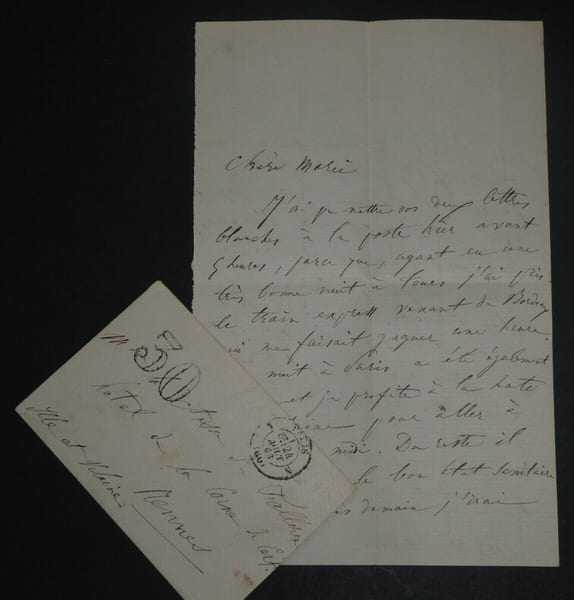 Chère Marie
J'ai pu mettre vos deux lettres
blanches à la poste hier avant
5 heures, parce que, ayant eu une
très bonne nuit à Tours j'ai pris
le train express venant de Bordeaux
me faisait gagner une heure.
nuit à Paris a été également
et je profite à la hate
pour aller à
midi. Du reste il
le bon état sanitaire
demain j'irai
30
hotel de la Corne de Cerf
Rennes
Ille et Vilaine
PARIS